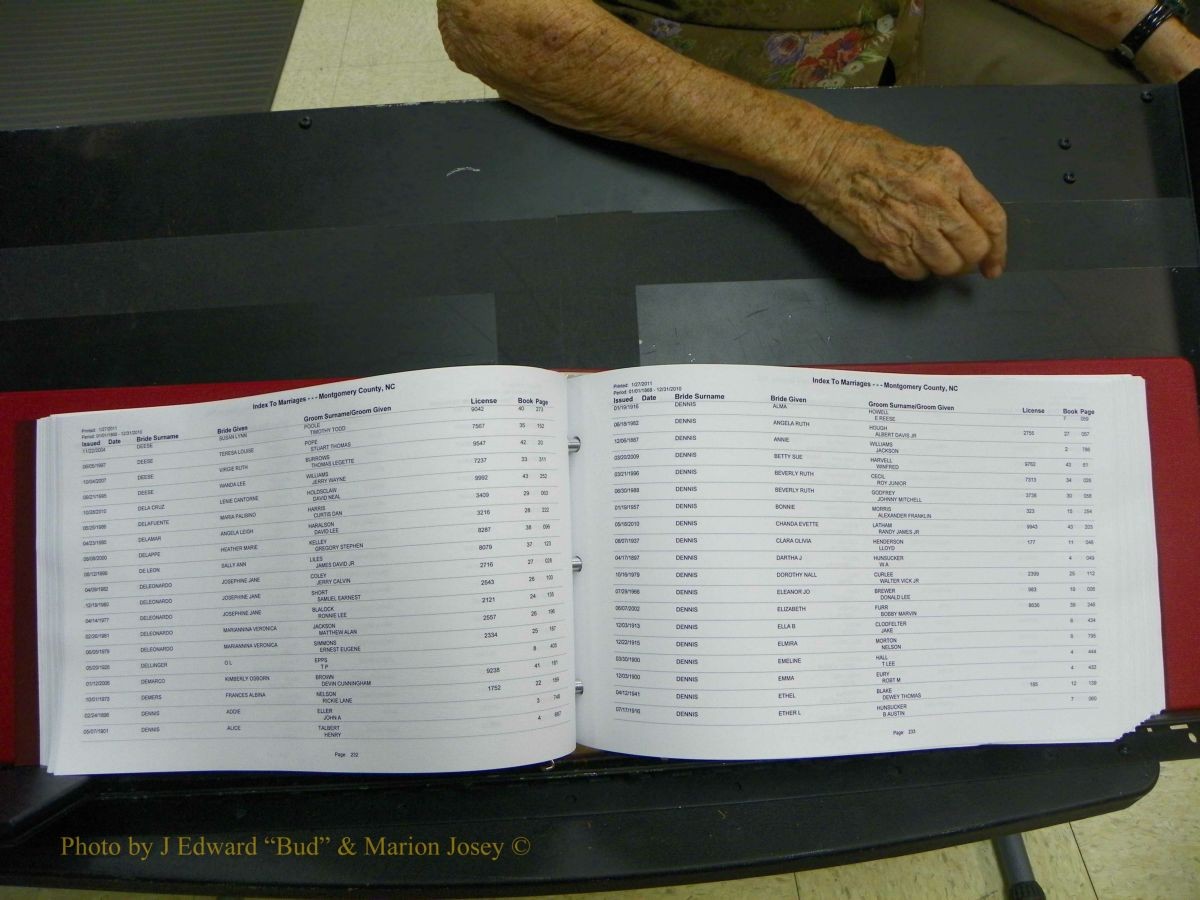 Index To Marriages - - - Montgomery County, NC
Printed: 1/27/2011
Period: 01/01/1868 - 12/31/2010
Issued Date Bride Surname Bride Given Groom Surname/Groom Given License Book Page
11/22/2004 DEESE SUSAN LYNN POOLE 9042 40 273
TIMOTHY TODD
06/05/1997 DEESE TERESA LOUISE POPE 7567 35 152
STUART THOMAS
10/04/2007 DEESE VIRGIE RUTH BURROWS 9547 42 20
THOMAS LEGETTE
09/21/1995 DEESE WANDA LEE WILLIAMS 7237 33 311
JERRY WAYNE
10/28/2010 DELA CRUZ LENIE CANTORNE HOLDSCLAW 9992 43 252
DAVID NEAL
DELAFUENTE MARIA PALISINO HARRIS 3409 29 063
CURTIS DAN
04/23/1985 DELAMAR ANGELA LEIGH HARALSON 3216 28 222
DAVID LEE
06/08/2000 DELAPPE HEATHER MARIE KELLEY 8287 38 096
GREGORY STEPHEN
06/12/1999 DE LEON SALLY ANN LILES 8079 37 123
JAMES DAVID JR
04/28/1982 DELEONARDO JOSEPHINE JANE COLEY 2716 27 026
JERRY CALVIN
12/19/1980 DELEONARDO JOSEPHINE JANE SHORT 2543 26 100
SAMUEL EARNEST
04/14/1977 DELEONARDO JOSEPHINE JANE BLALOCK 2121 24 135
RONNIE LEE
02/26/1981 DELEONARDO MARIANNINA VERONICA JACKSON 2557 26 196
MATTHEW ALAN
06/05/1979 DELEONARDO MARIANNINA VERONICA SIMMONS 2334 25 187
ERNEST EUGENE
05/29/1926 DELLINGER O L EPPS 8 405
T P
01/12/2006 DEMARCO KIMBERLY OSBORN BROWN 9238 41 181
DEVIN CUNNINGHAM
10/01/1973 DEMERS FRANCES ALBINA NELSON 1752 22 189
RICKIE LANE
02/24/1896 DENNIS ADDIE ELLER 3 748
JOHN A
05/07/1901 DENNIS ALICE TALBERT 4 687
HENRY
Page 232
Index To Marriages - - - Montgomery County, NC
Printed: 1/27/2011
Period: 01/01/1868 - 12/31/2010
Issued Date Bride Surname Bride Given Groom Surname/Groom Given License Book Page
01/19/1916 DENNIS ALMA HOWELL 7 059
E REESE
06/18/1982 DENNIS ANGELA RUTH HOUGH 2755 27 057
ALBERT DAVIS JR
12/06/1887 DENNIS ANNIE WILLIAMS 2 766
JACKSON
03/20/2009 DENNIS BETTY SUE HARVELL 9762 43 61
WINFRED
03/21/1996 DENNIS BEVERLY RUTH CECIL 7313 34 026
ROY JUNIOR
06/30/1988 DENNIS BEVERLY RUTH GODFREY 3738 30 058
JOHNNY MITCHELL
01/19/1957 DENNIS BONNIE MORRIS 323 15 254
ALEXANDER FRANKLIN
05/18/2010 DENNIS CHANDA EVETTE LATHAM 9943 43 203
RANDY JAMES JR
08/07/1937 DENNIS CLARA OLIVIA HENDERSON 177 11 046
LLOYD
04/17/1897 DENNIS DARTHA J HUNSUCKER 4 049
W A
10/16/1979 DENNIS DOROTHY NALL CURLEE 2399 25 112
WALTER VICK JR
07/29/1966 DENNIS ELEANOR JO BREWER 983 19 006
DONALD LEE
06/07/2002 DENNIS ELIZABETH FURR 8636 39 246
BOBBY MARVIN
12/03/1913 DENNIS ELLA B CLODFELTER 6 434
JAKE
12/22/1915 DENNIS ELMIRA MORTON 6 795
NELSON
03/30/1900 DENNIS EMELINE HALL 4 444
T LEE
12/03/1900 DENNIS EMMA EURY 4 432
ROBT M
04/12/1941 DENNIS ETHEL BLAKE 185 12 139
DEWEY THOMAS
07/17/1916 DENNIS ETHER L HUNSUCKER 7 060
B AUSTIN
Page 233
Photo by J Edward “Bud” & Marion Josey ©